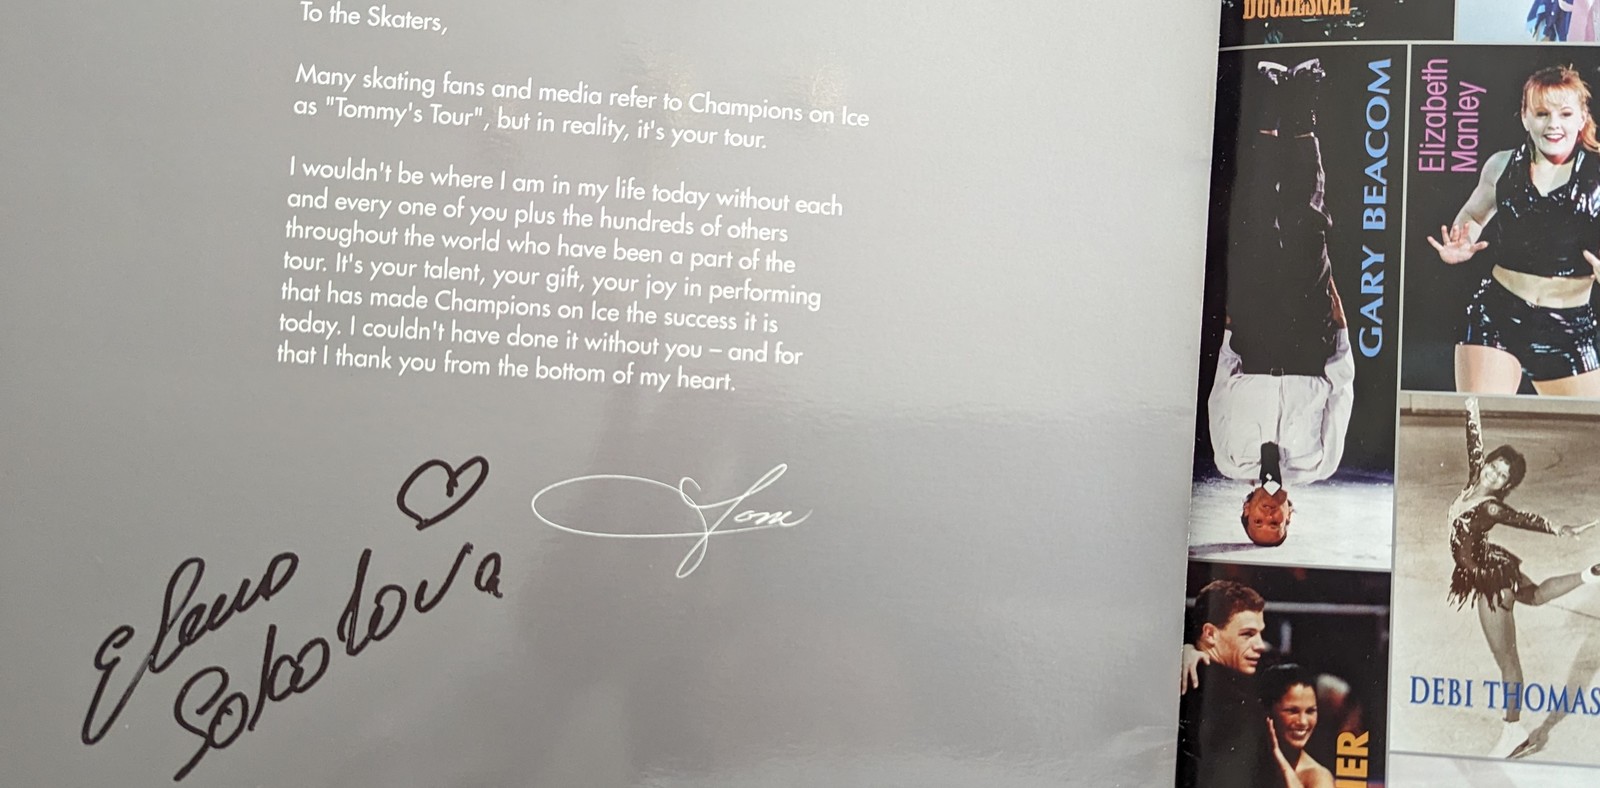 To the Skaters,
Many skating fans and media refer to Champions on Ice
as "Tommy's Tour", but in reality, it's your tour.
I wouldn't be where I am in my life today without each
and every one of you plus the hundreds of others
throughout the world who have been a part of the
tour. It's your talent, your gift, your joy in performing
that has made Champions on Ice the success it is
today. I couldn't have done it without you – and for
that I thank you from the bottom of my heart.
Tom
Elena
Sokolova
DUCHESNAY
GARY BEACOM
Elizabeth
Manley
DEBI THOMAS